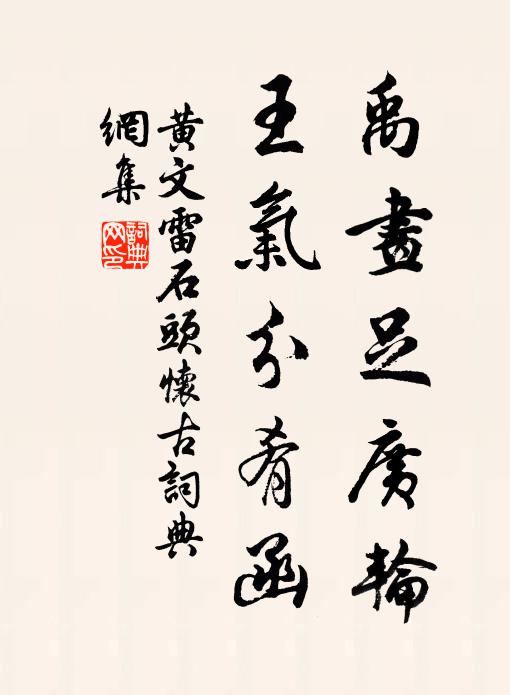 禹畫足廣輪
王氣分肴函
黃文雷石頭懷古詞典
網集
詞典網印